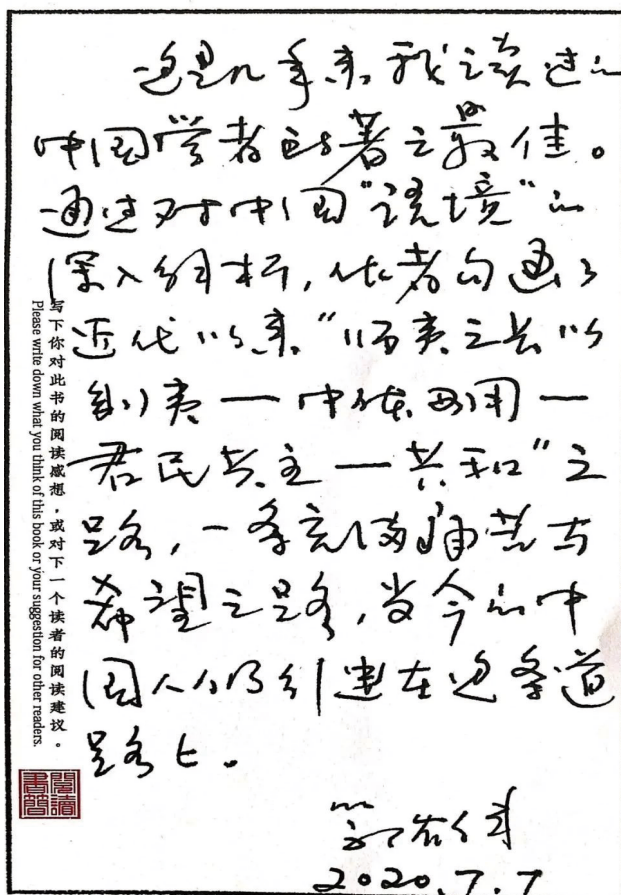 这是几年来,我读过的
中国学者所著之最佳。
通过对中国“语境”的
深入分析,作者勾画了
近代以来“师夷之长以
制夷一中体西用一
君民共主一共和”之
路,一条充满痛苦与
希望之路,当今的中
国人仍行进在这条道
路上。
2020.7.7
写下你对此书的阅读感想,或对下一个读者的阅读建议。
Please write down what you think of this book or your suggestion for other readers.
閱讀
書簡